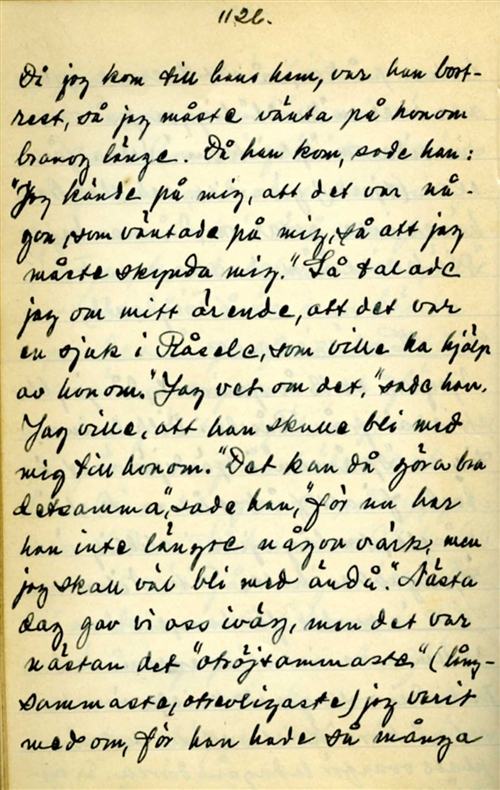 1126.
Då jag kom till hans hem, var han bort-
rest, så jag måste vänta på honom
bra nog länge. Då han kom, sade han:
"Jag kände på mig, att det var nå-
gon, som väntade på mig, så att jag
måste skynda mig." Så talade
jag om mitt ärende, att det var
en sjuk i Råsele, som ville ha hjälp
av honom. "Jag vet om det," sade han.
Jag ville, att han skulle bli med
mig till honom. "Det kan då göra bra
detsamma," sade han, "för nu har
han inte längre någon värk, men
jag skall väl bli med ändå." Nästa
dag gav vi oss iväg, men det var
nästan det "otröjsammaste" (lång-
sammaste, otrevligaste) jag varit
med om, för han hade så många